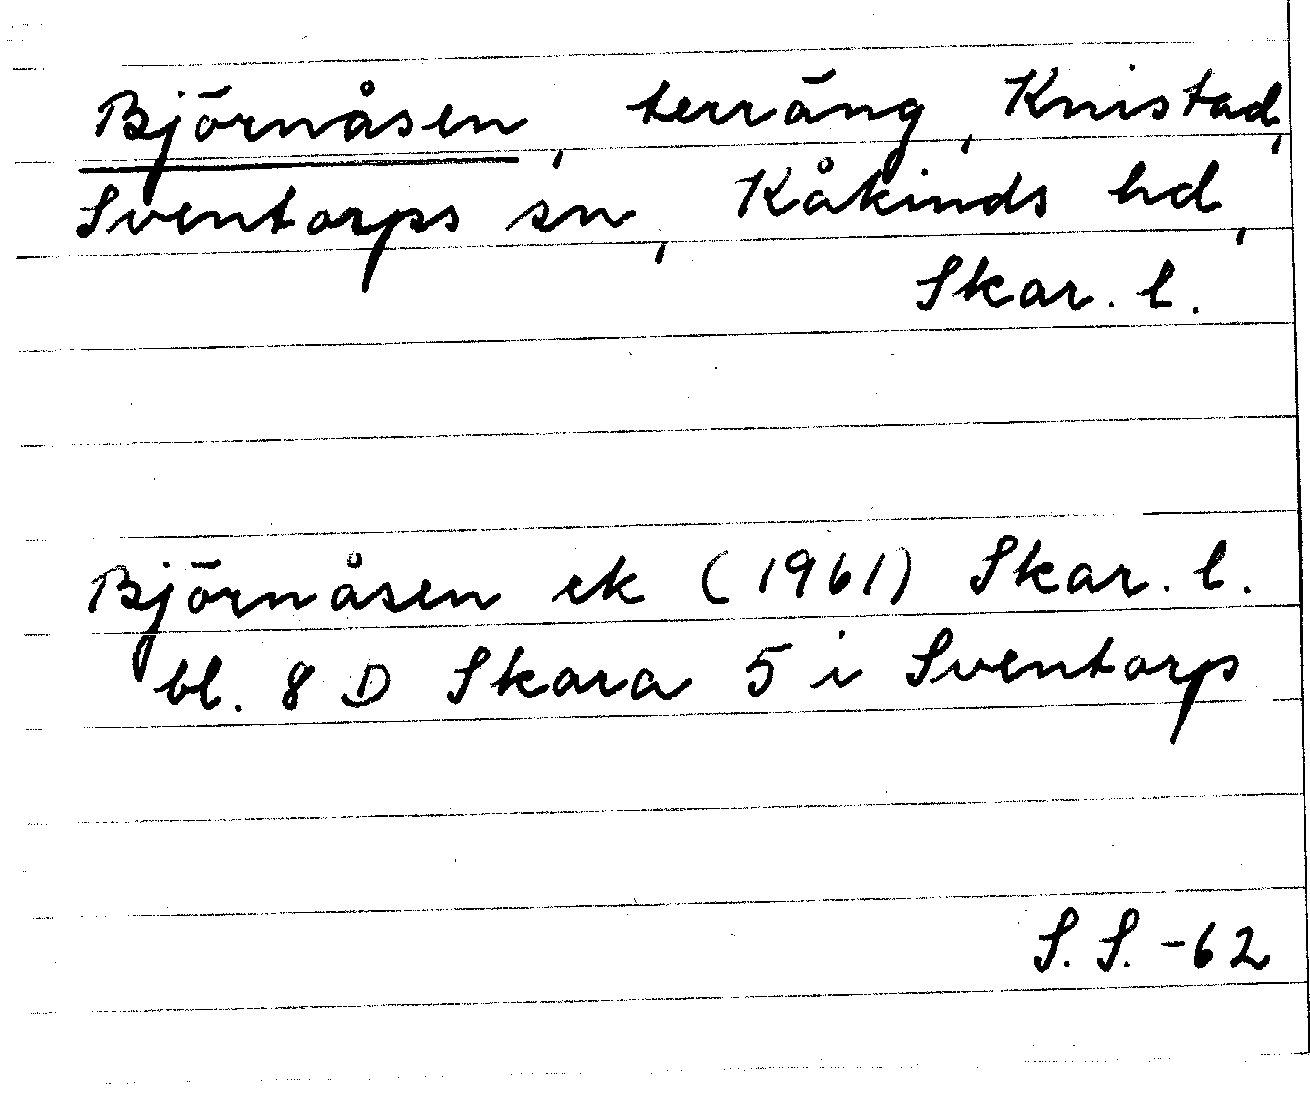 Björnåsen, terräng, Knistad,
Sventorps sn, Kåkinds hd,
Skar. l.
Björnåsen ek (1961) Skar. l.
bl. 8 D Skara 5 i Sventorp
S. S. -62